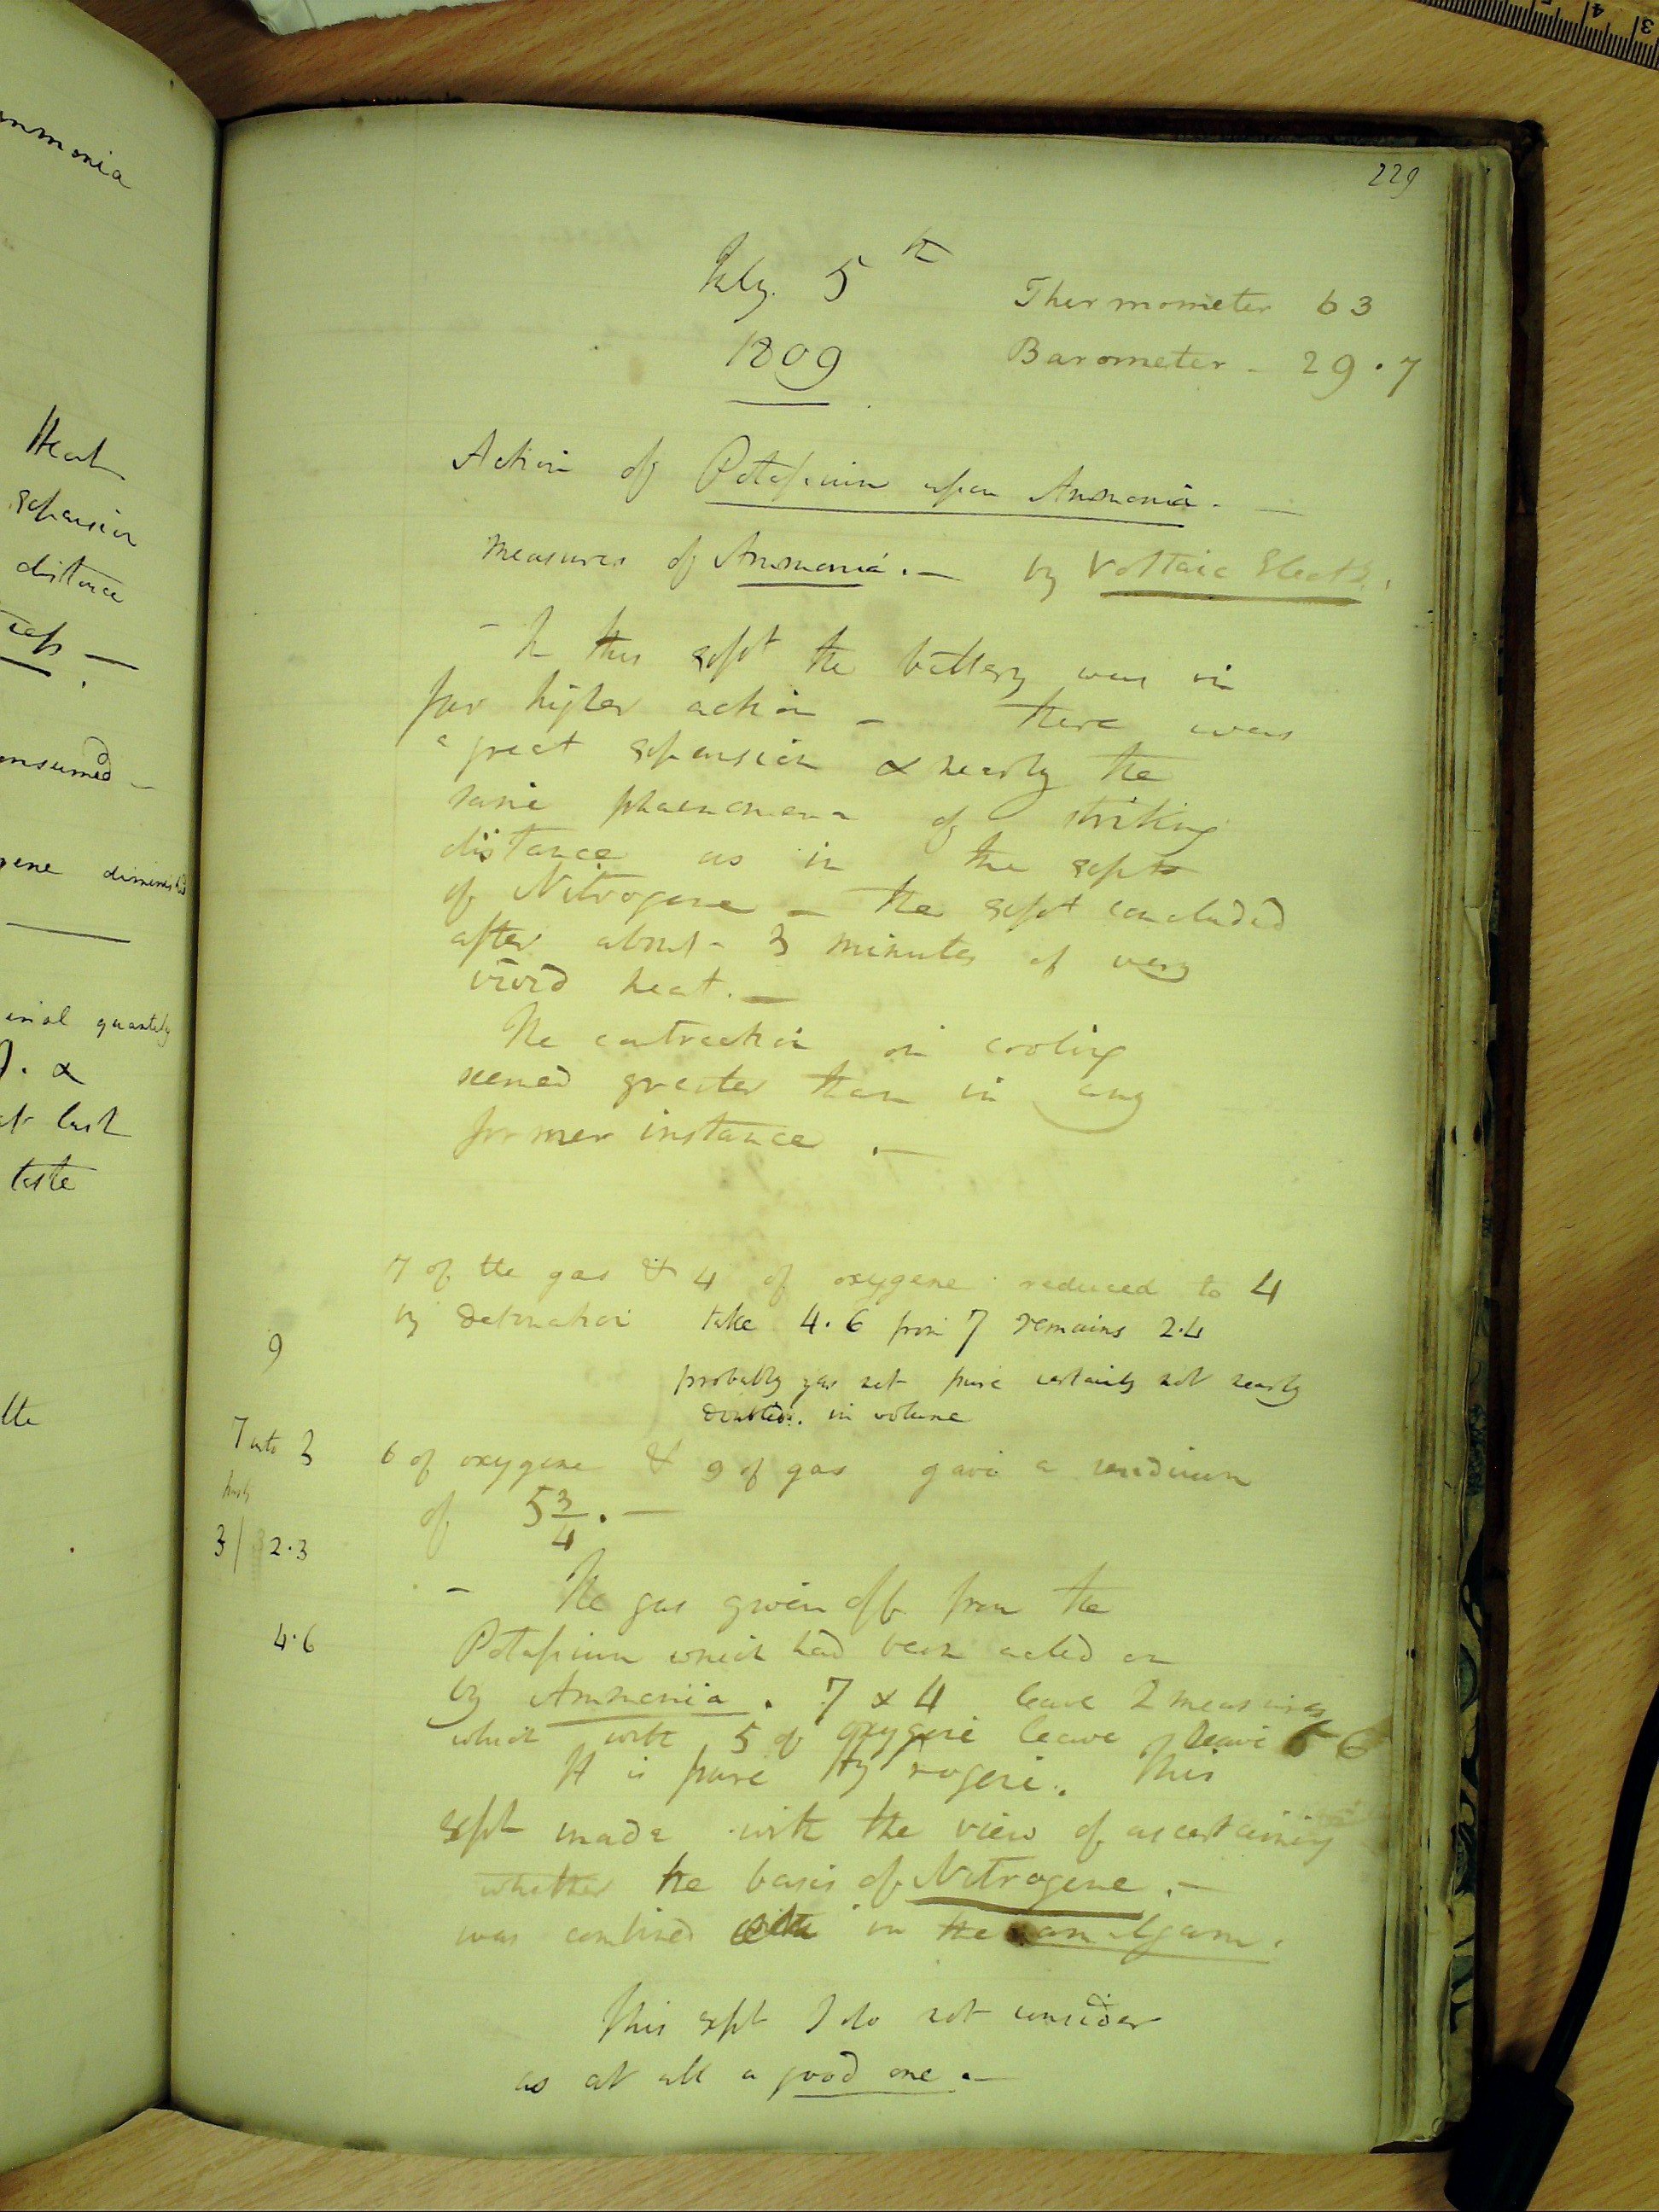 mmonia
Heat
expansion
distance
consumed -
gene diminishd
inal quantity
). &
at last
taste
tte
229
July. 5th
Thermometer 63
1809
Barometer - 29.7
Action of Potassium upon Ammonia. -
measures of Ammonia. - by Voltaic Electy.
- In this expt the battery was in
far higher action - there was
a great expansion & nearly the
same phaenomena of striking
distance as in the expts
of Nitrogene - the expt concluded
after about - 3 minutes of very
vivid heat. -
The contraction on cooling
seemed greater than in any
former instance . -
7 of the gas & 4 of oxygene reduced to 4
by detonation take 4.6 from 7 remains 2.4
9
probably gas not pure certainly not nearly
doubled. in volume
7 into 3
6 of oxygene & 9 of gas gave a residuum
of 5 3/4. -
3/ 2.3
- The gas given off from the
4.6
Potassium which had been acted on
by Ammonia. 7 & 4 leave 2 measures
which with 5 of oxygene leave leave 6
It is pure Hydrogene. This
expt made with the view of ascertaining
whether the basis of Nitrogene. -
was combined in the amalgam.
This expt I do not consider
as at all a good one. -
5
4
3